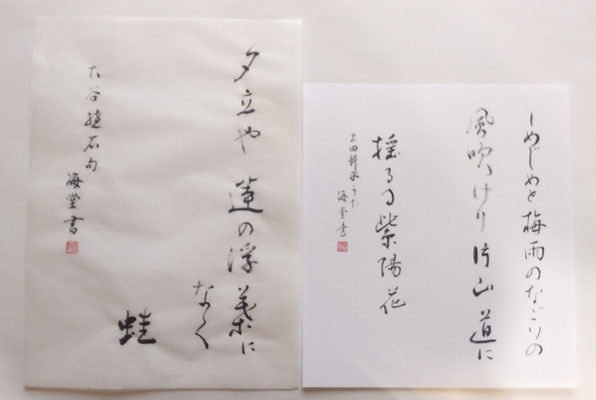 しめじめと梅雨のなごりの
風吹けり片山道に
揺るる紫陽花
土田耕平うた
海堂書
夕立や 蓮の浮葉に
なく
蛙
大谷繞石句
海堂書